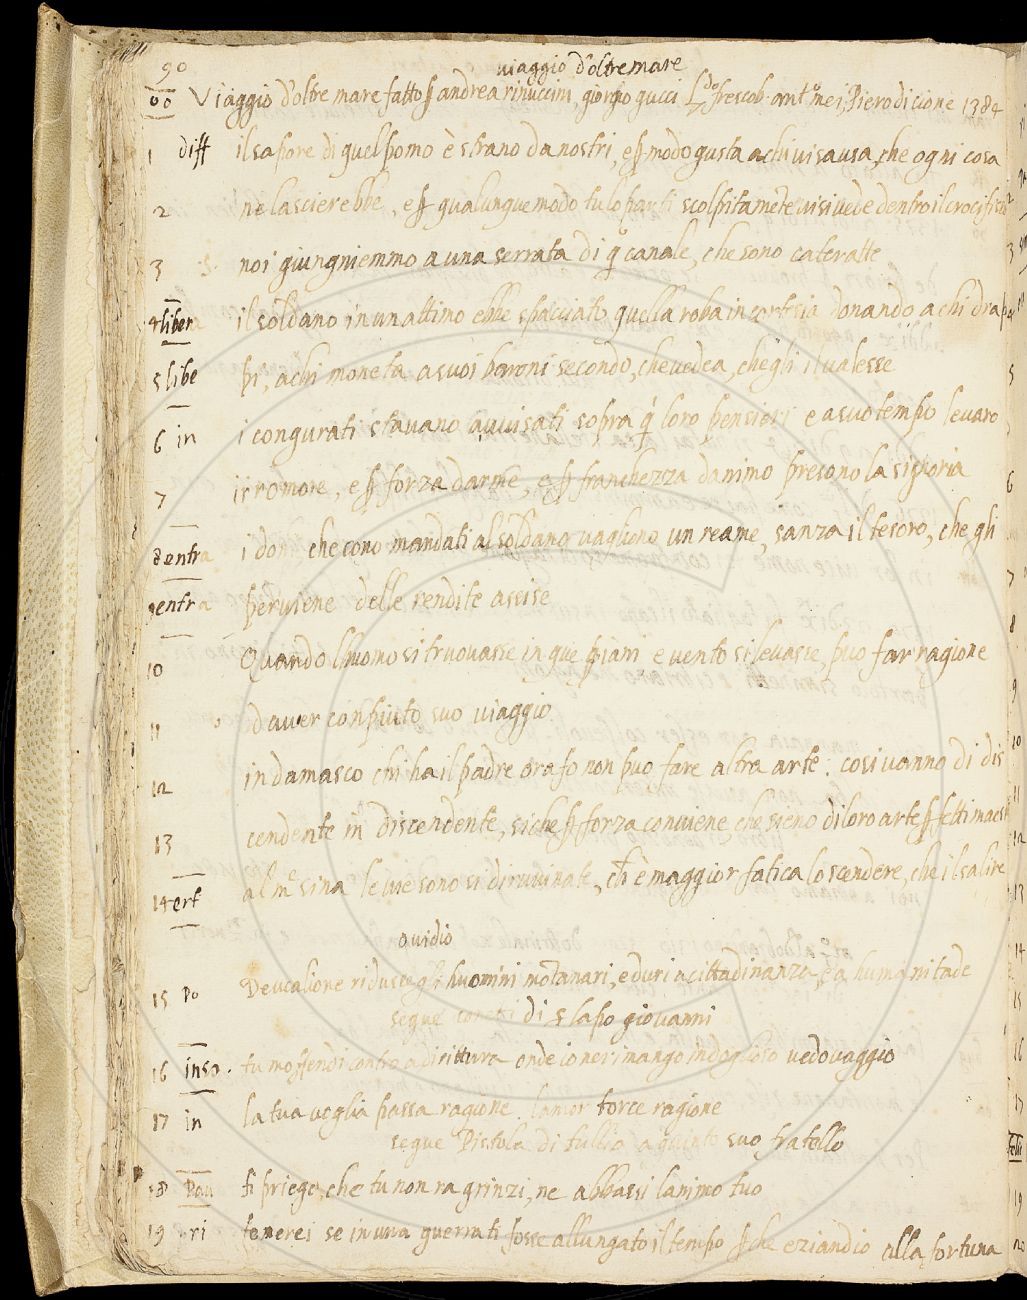 90 viaggio d'oltremare
Viaggio d'oltre mare fatto ꝑ andrea rinuccini, giorgio gucci Ldo frescob. antº mei, Piero di cione 1384
1 diff il sapore di quel pomo è strano da nostri, e ꝑ modo gusta a chi vi s ausa, che ogni cosa
2 ne lascierebbe, e ꝑ qualunque modo tu lo parti scolpitamēte visi vede dentro il crocifisso
3 noi giungniemmo a una serrata di q̄ canale, che sono cateratte
4 liber il soldano in un attimo ebbe spacciato quella roba in cortesia donando a chi drap
5 libe pi, a chi moneta a suoi baroni secondo, che vedea, che gli il valesse
6 in i congurati stavano avvisati sopra q̄ loro pensieri e a suo tempo levaro
7 ir romore, e ꝑ forza darme, e ꝑ franchezza danimo presono la signoria
8 entra i doni, che sono mandati al soldano vagliono un reame, sanza il tesoro, che gli
9 entra perviene delle rendite assise
10 Quando lhuomo si truovasse in que e vento si levasse, può far ragione
11 daver compiuto suo viaggio
12 in damasco chi ha il padre orafo non può fare altra arte: cosi vanno di dis
13 cendente in discendente, siche ꝑ forza conviene, che sieno di loro arte ꝑfetti maest
14 erf al mē sina le vie sono si dirivinate, ch̄ è maggior fatica lo scendere, che il salire
ovidio
15 Po Deucalione ridusse gli huomini mōtanari, e duri a cittadinanza, e a humanitade
segue di s lapo giovanni
16 inso tu moffendi contro a dirittura onde io ne rimango indoglioso vedovaggio
17 in la tua voglia passa ragione. lamor torce ragione
segue Pistola di tullio a quinto suo fratello
18 Pau ti priego, che tu non ragrinzi, ne abbassi lanimo tuo
19 ri temerei se in una guerra ti fosse allungato il tempo ꝑche eziandio alla fortuna